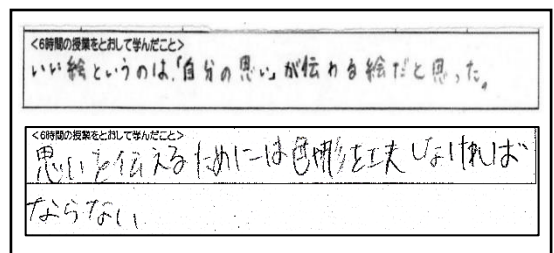 <6時間の授業をとおして学んだこと>
いい絵というのは、「自分の思い」が伝わる絵だと思った。
<6時間の授業をとおして学んだこと>
思いを伝えるためには色や形を工夫しなければ
ならない